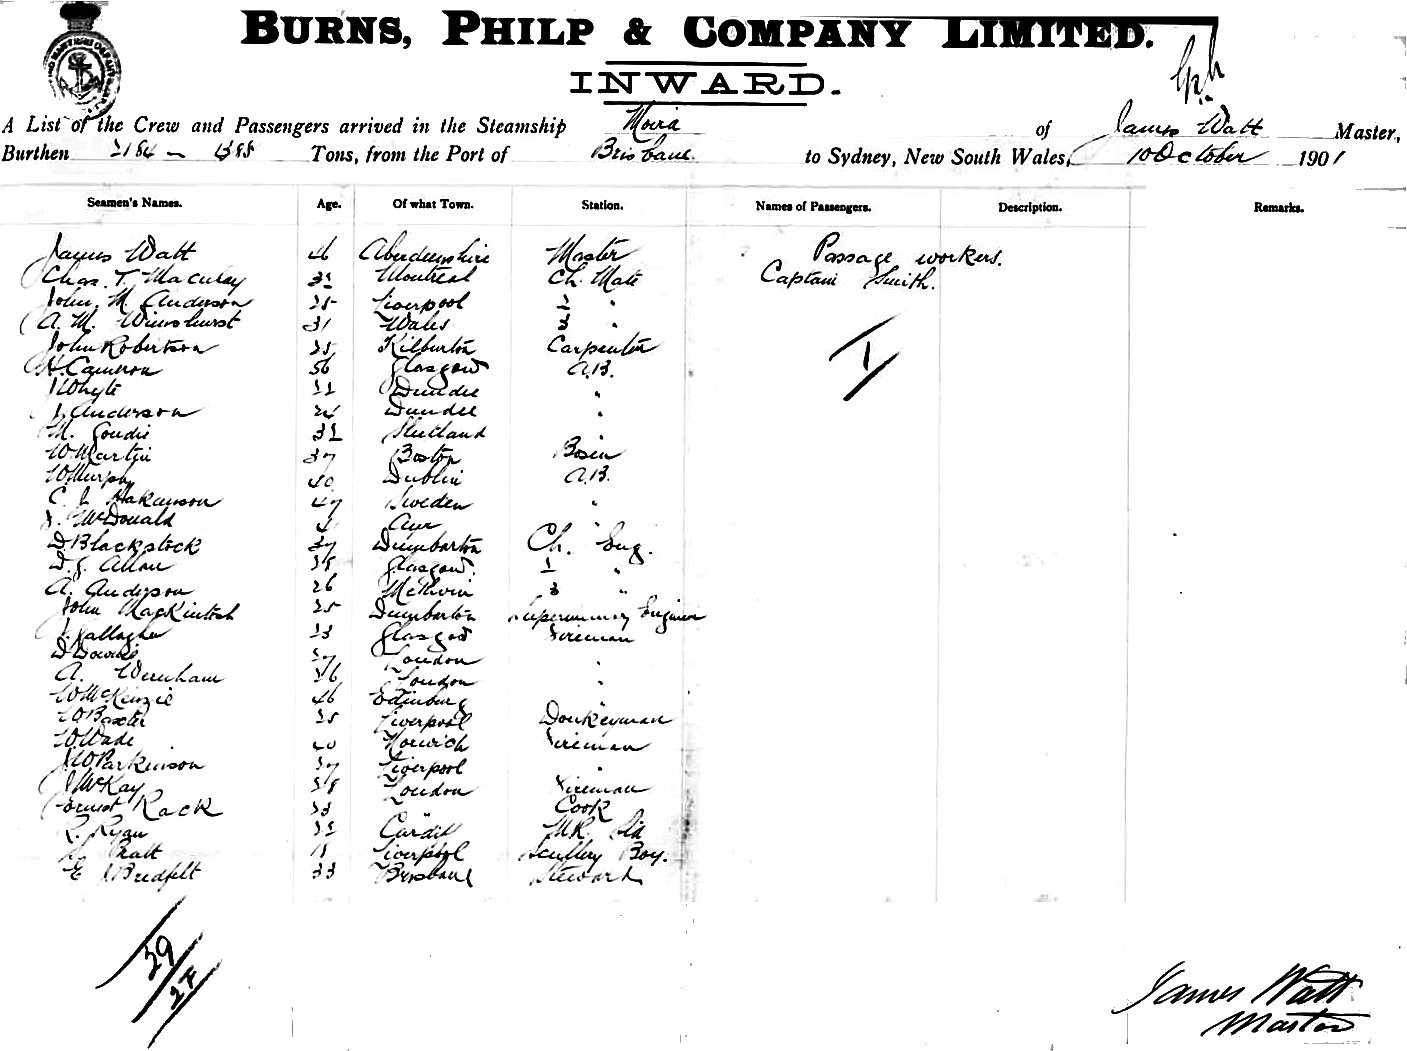 BURNS, PHILP & COMPANY LIMITED.
INWARD.
A List of the Crew and Passengers arrived in the Steamship Moira of James Watt Master,
Burthen 2184 – 1388 Tons, from the Port of Brisbane to Sydney, New South Wales, 10 October 1901
Seamen's Names. Age. Of what Town. Station. Names of Passengers. Description. Remarks.
James Watt 46 Aberdeenshire Master Passage workers.
Chas. T. Maculay 32 Montreal Ch. Mate Captain Smith.
John. M. Anderson 25 Liverpool 2 "
A. M. Wimshurst 31 Wales 3 "
John Robertson 25 Kilburton Carpenter 1
H. Cameron 56 Glasgow A.B.
J Whyte 22 Dundee "
J. Anderson 24 Dundee "
M. Goudie 32 Shetland
W. Martin 37 Boston Bosn
W. Murphy 40 Dublin A.B.
C. J. Hakanson 47 Sweden "
J. McDonald Ayr "
D. Blackstock 37 Dumbarton Ch. Eng.
D. J. Allan Glasgow. "
A. Anderson 26 3 "
John MacKintosh 25 Dumbarton Supernumery Engineer
J. Gallagher 23 Glasgow Fireman
D Downie 27 London "
A. Wernham 36 London "
W McKenzie 46 Edinburg "
W Baxter 25 Liverpool Donkeyman
W. Wade 40 Norwich Fireman
J W Parkinson 27 Liverpool "
J McKay 28 London Fireman
Ernest Rack 23 " Cook
R. Ryan 22 Cardiff M.R. Std
Pratt 18 Liverpool Scullery Boy.
E J Bredfelt 33 Brisbane Steward
29/24
James Watt
Master